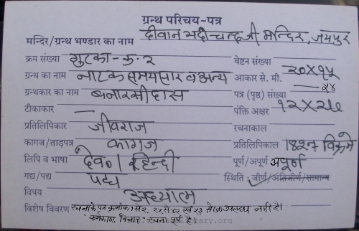 ग्रन्थ परिचय-पत्र
मन्दिर/ग्रन्थ भण्डार का नाम दीवान भदीचन्द जी मन्दिर, जयपुर
क्रम संख्या गुटका-क्र. २ वेष्टन संख्या
ग्रन्थ का नाम नाटक समयसार व अन्य आकार से. मी. २०×१५
ग्रन्थकार का नाम बनारसीदास पत्र (पृष्ठ) संख्या
टीकाकार पंक्ति अक्षर १२×२६
प्रतिलिपिकार जीवराज रचनाकाल
कागज/ताड़पत्र कागज प्रतिलिपिकाल
लिपि व भाषा देव० / हिन्दी पूर्ण/अपूर्ण अपूर्ण
गद्य/पद्य पद्य स्थिति - जीर्ण/अतिजीर्ण/सामान्य
विषय अध्यात्म
विशेष विवरण